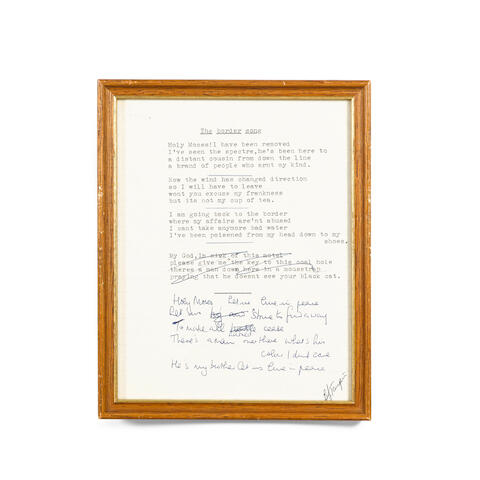 The border song
Holy Moses!I have been removed
I've seen the spectre,he's been here to
a distant cousin from down the line
a brand of people who arnt my kind.
Now the wind has changed direction
so I will have to leave
wont you excuse my frankness
but its not my cup of tea.
I am going back to the border
where my affairs are'nt abused
I cant take anymore bad water
I've been poisened from my head down to my
shoes.
My God,in
please give me the key to this coal hole
theres a man down here in a mousetrap
praying that he doesnt see your black cat.
Holy Moses let us live in peace
Let us strive to find away
To make all hatred cease
There's a man over there what's his
color I dont care
He's my brother let us live in peace